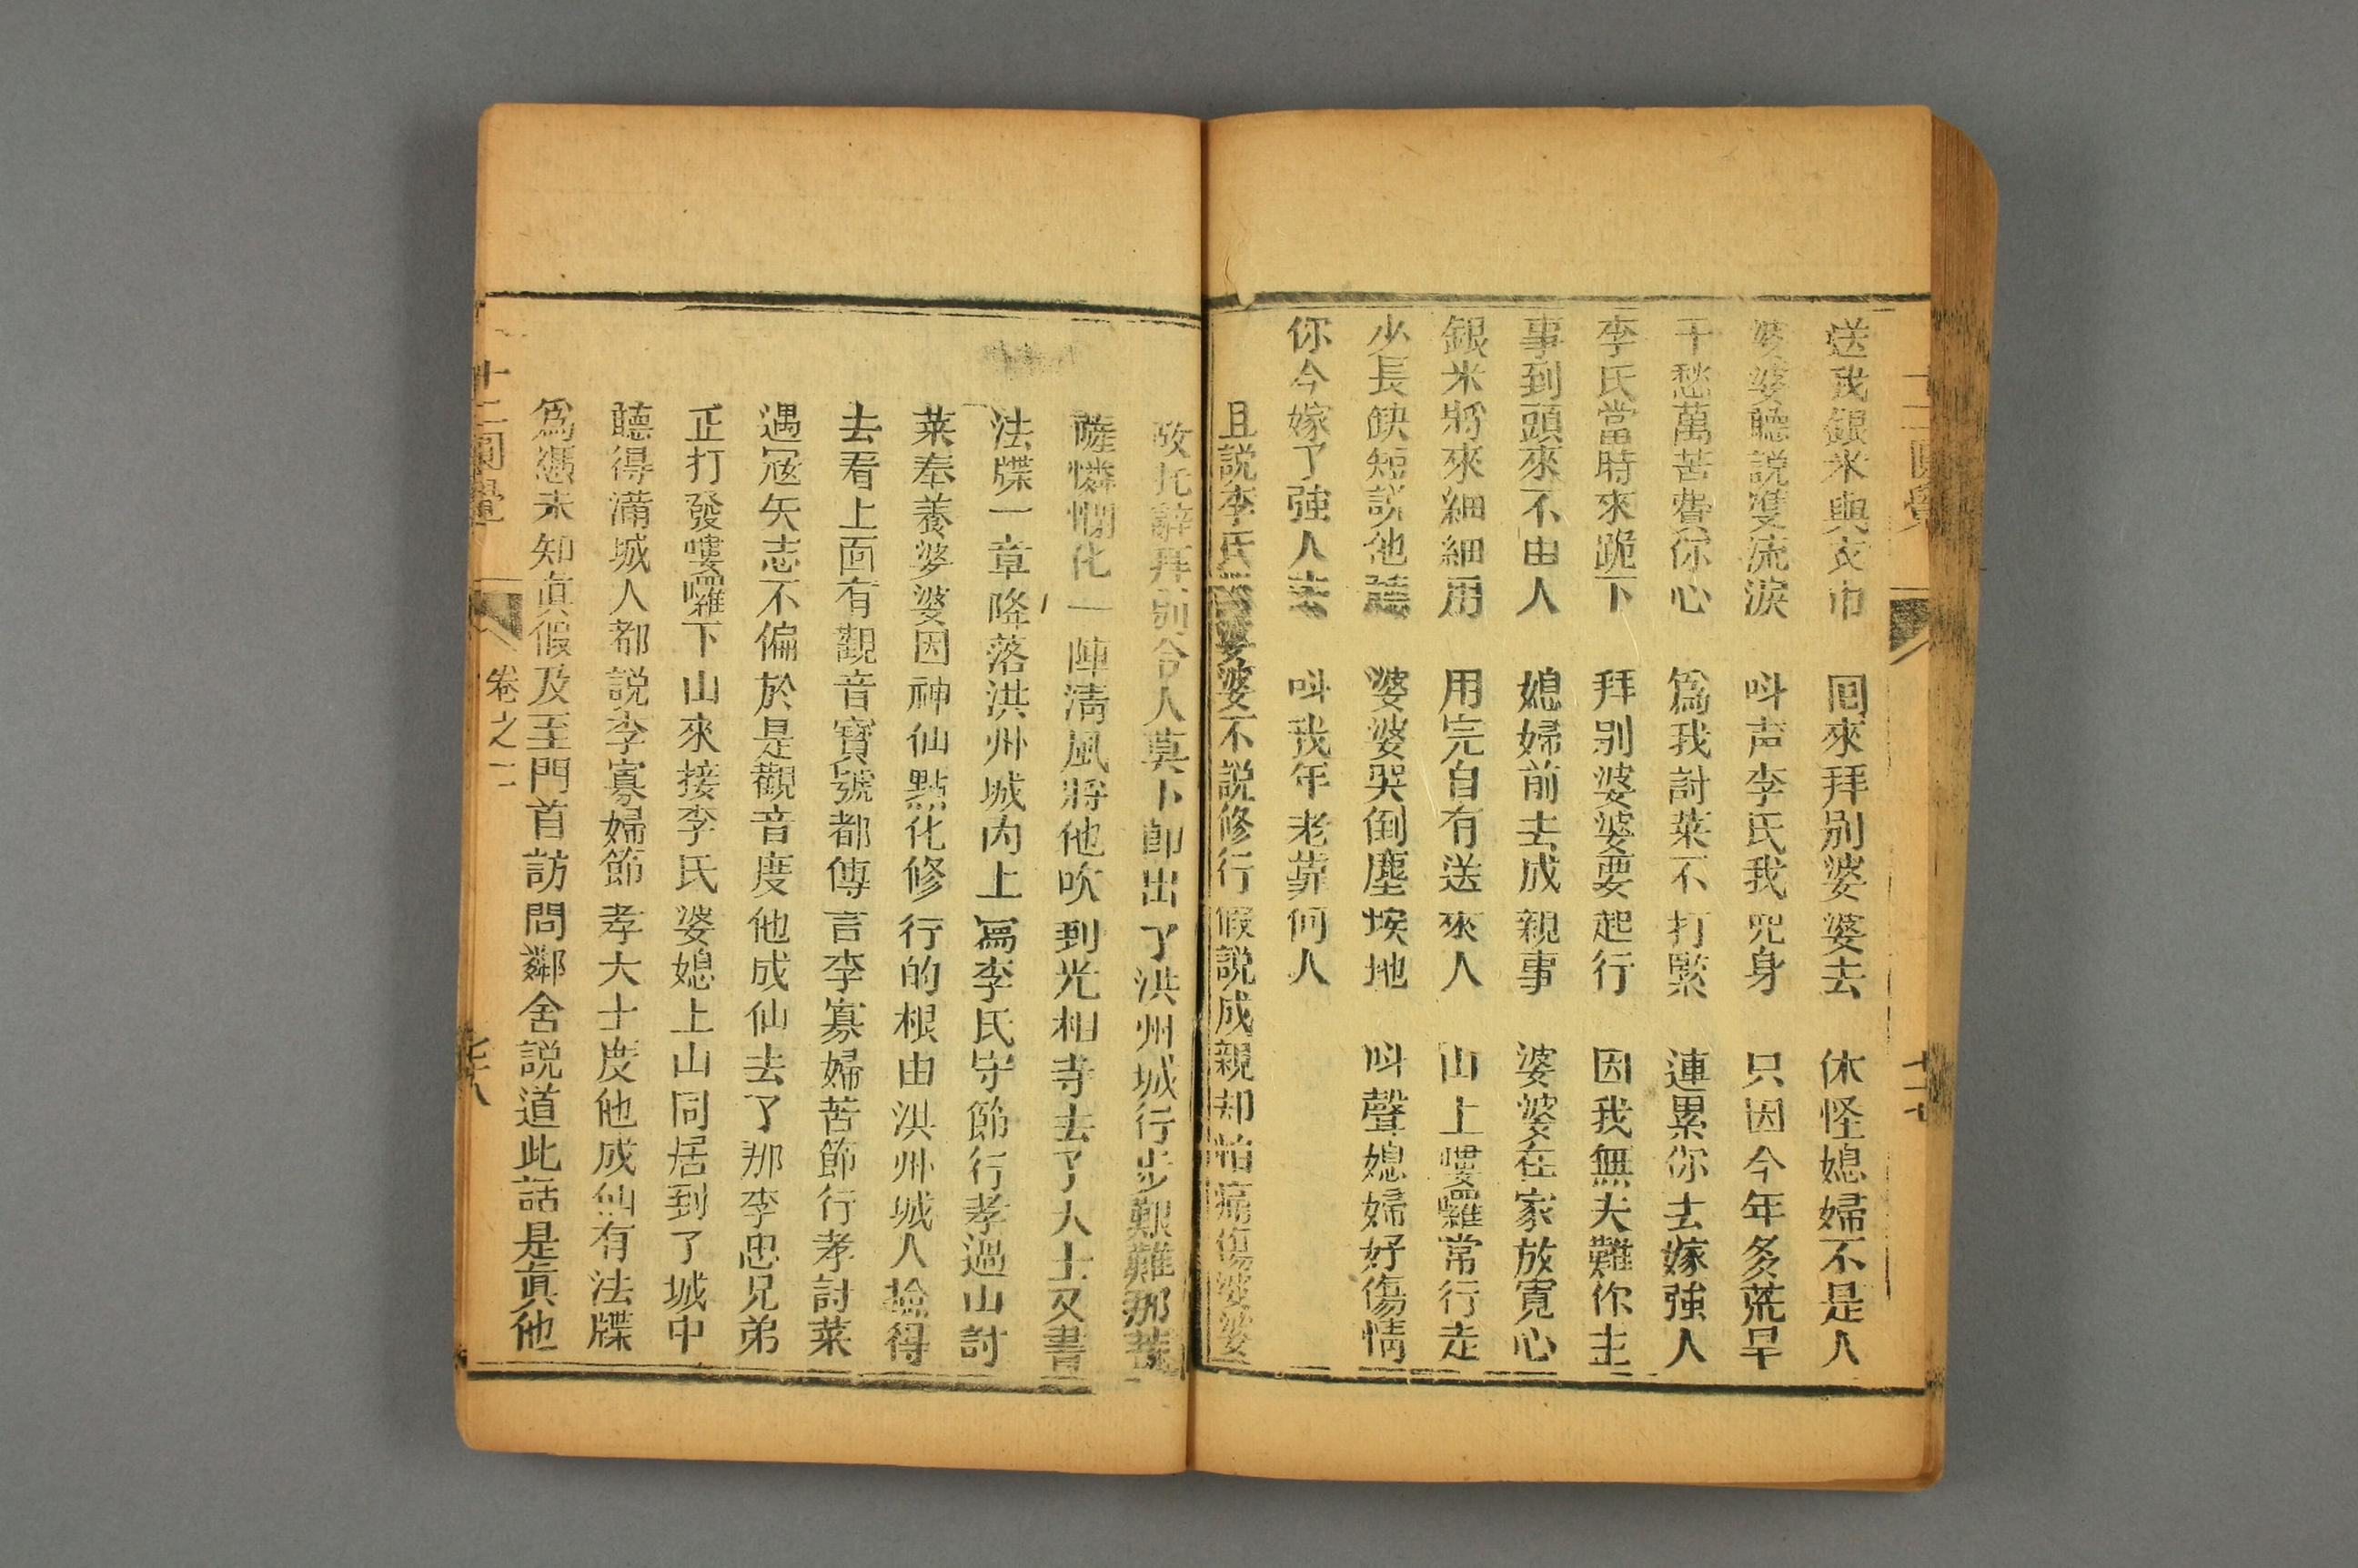 送我銀米與衣巾　回來拜别婆婆去　休怪媳婦不是人
婆婆聽説雙流淚　呌声李氏我兒身　只因今年多荒旱
千愁萬苦費你心　爲我討菜不打緊　連累你去嫁強人
李氏當時來跪下　拜别婆婆要起行　因我無夫難作主
事到頭來不由人　媳婦前去成親事　婆婆在家放寛心
銀米將來細細用　用完自有送來人　山上嘍囉常行走
少長缺短説他聽　婆婆哭倒塵埃地　呌聲媳婦好傷情
你今嫁了強人去　呌我年老靠何人
且説李氏婆婆不説修行假説成親却怕痛傷婆婆
故托辭拜别令人莫卜卽出了洪州城行步艱難那菩
薩憐憫化一陣清風將他吹到光相寺去了大士又書
法牒一章降落洪州城内上寫李氏守節行孝過山討
菜奉養婆婆因神仙點化修行的根由洪州城人撿得
去看上面有觀音寳號都傳言李寡婦苦節行孝討菜
遇冦矢志不偏於是觀音度他成仙去了那李忠兄弟
正打發嘍囉下山來接李氏婆媳上山同居到了城中
聽得滿城人都説李寡婦節孝大士度他成仙有法牒
爲憑未知眞假及至門首訪問鄰舍説道此話是眞他
十二圓覺
卷之二